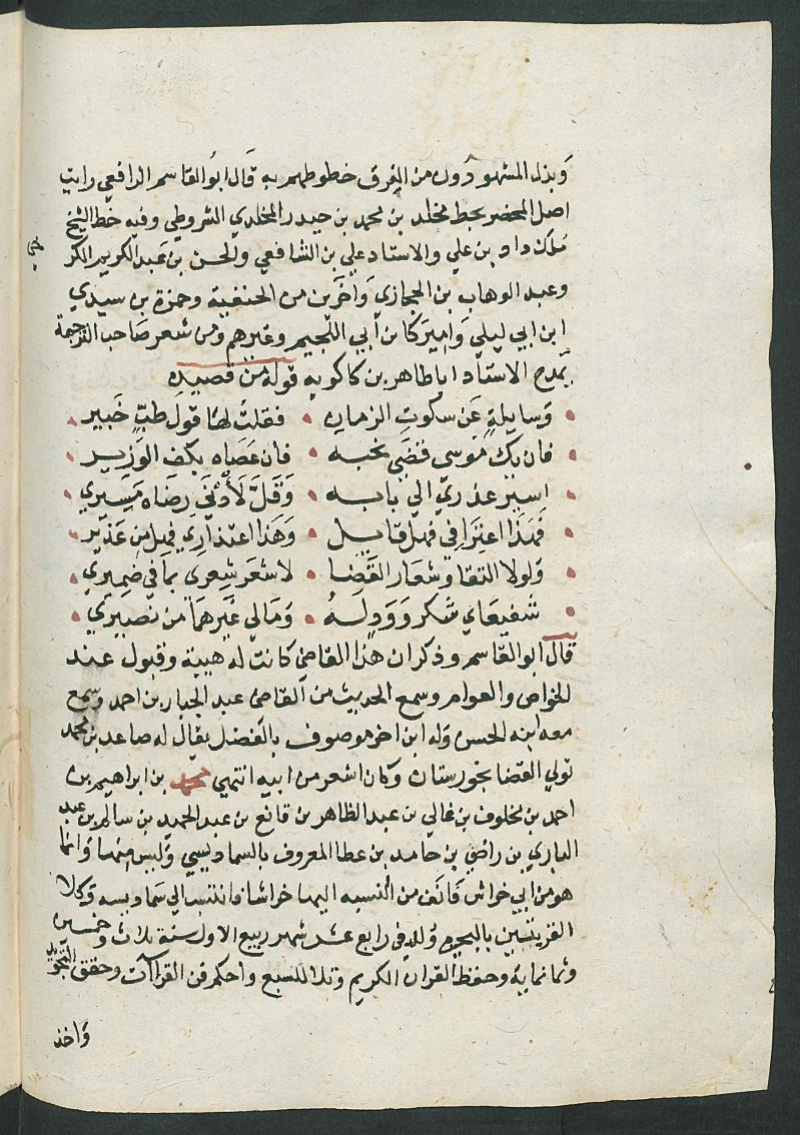 وبذل المشهودون من الفرق خطوطهم به قال ابو القاسم الرافعي رايت
اصل المحضر بخط مخلد بن محمد بن حيدر المخلدي الشروطي وفيه خط الشيخ
ملك داد بن علي والاستاد علي بن الشافعي والحسن بن عبد الكريم الكر
وعبد الوهاب بن الحجازي واخرين من الحنفية وحمزة بن سيدي
ابن ابي ليلي واميركا بن ابي اللجيم وغيرهم ومن شعر صاحب الترجمة
يمدح الاستاد ابا طاهر بن كاكويه قوله من قصيدة
وسايلة عن سكوت الزمان • فقلت لها قول طب خبير
فان يك موسى قضى نحبه • فان عصاه بكف الوزير
اسير عذري الي بابه • وقل لأدني رضاه مسيري
فهذا اعترافي فهل قابل • وهذا اعتذاري فهل من عذير
ولولا التقا وشعار القضا • لاشعر شعري بما في ضميري
شفيعاي شكر وود له • ومالي غيرهما من نصير
قال ابو القاسم وذكر ان هذا القاضي كانت له هيبة وقبول عند
الخواص والعوام وسمع الحديث من القاضي عبد الجبار بن احمد وسمع
معه ابنه الحسن وله ابن اخر موصوف بالفضل يقال له صاعد بن محمد
تولي القضا بخورستان وكان اشعر من ابيه انتهي محمد بن ابراهيم بن
احمد بن مخلوف بن غالي بن عبد الظاهر بن قانع بن عبد الحميد بن سالم بن عبد
الباري بن راضي بن حامد بن عطا المعروف بالسماديسي وليس منها وانما
هو من ابي خراش فانف من النسبه اليها خراشا فانتسب الي سماديسه وكلا
القريتين بالبحيره ولد في رابع عشر شهر ربيع الاول سنة ثلاث وخمسين
وثمانماية وحفظ القران الكريم وتلا للسبع واحكم فن القراآت وحقق التجويد
واخذ